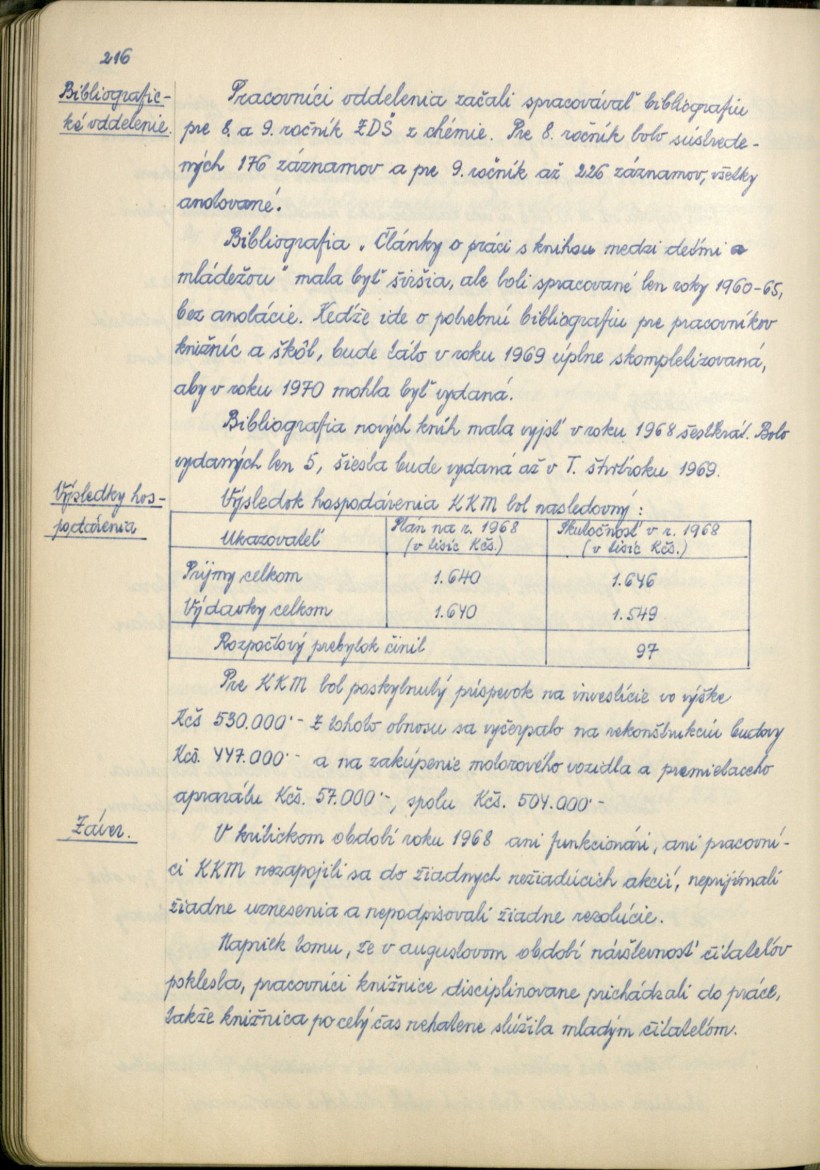 216
Bibliografic-
ké oddelenie.
Pracovníci oddelenia začali spracovávať bibliografiu
pre 8. a 9. ročník ZDŠ z chémie. Pre 8. ročník bolo sústrede-
ných 176 záznamov a pre 9. ročník až 226 záznamov, všetky
anotované.
Bibliografia "Články o práci s knihou medzi deťmi a
mládežou" mala byť širšia, ale boli spracované len roky 1960-65,
bez anotácie. Keďže ide o potrebnú bibliografiu pre pracovníkov
knižníc a škôl, bude táto v roku 1969 úplne skompletizovaná,
aby v roku 1970 mohla byť vydaná.
Bibliografia nových kníh mala vyjsť v roku 1968 šestkrát. Bolo
vydaných len 5, šiesta bude vydaná až v I. štvrťroku 1969.
Výsledky hos-
podárenia
Výsledok hospodárenia KKM bol nasledovný:
Ukazovateľ Plán na r. 1968 Skutočnosť v r. 1968
(v tisíc Kčs.) (v tisíc Kčs.)
Príjmy celkom 1.640 1.646
Výdavky celkom 1.640 1.549
Rozpočtový prebytok činil 97
Pre KKM bol poskytnutý príspevok na investície vo výške
Kčs 530.000·- Z tohoto obnosu sa vyčerpalo na rekonštrukciu budovy
Kčs. 447.000·- a na zakúpenie motorového vozidla a premietacieho
aprarátu Kčs. 57.000·-, spolu Kčs. 504.000·-
Záver.
V kritickom období roku 1968 ani funkcionári, ani pracovní-
ci KKM nezapojili sa do žiadnych nežiadúcich akcií, neprijímali
žiadne uznesenia a nepodpisovali žiadne rezolúcie.
Napriek tomu, že v augustovom období návštevnosť čitateľov
poklesla, pracovníci knižnice disciplinovane prichádzali do práce,
takže knižnica po celý čas nerušene slúžila mladým čitateľom.